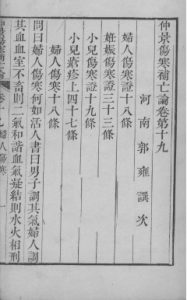 仲景傷寒補亡論卷第十九
河南郭雍譔次
婦人傷寒證十八條
妊娠傷寒證三十三條
小兒傷寒證十九條
小兒瘡疹上四十七條
婦人傷寒十八條
問曰婦人傷寒何如活人書曰男子調其氣婦人調
其血血室不蓄則二氣和諧血氣凝結則水火相刑